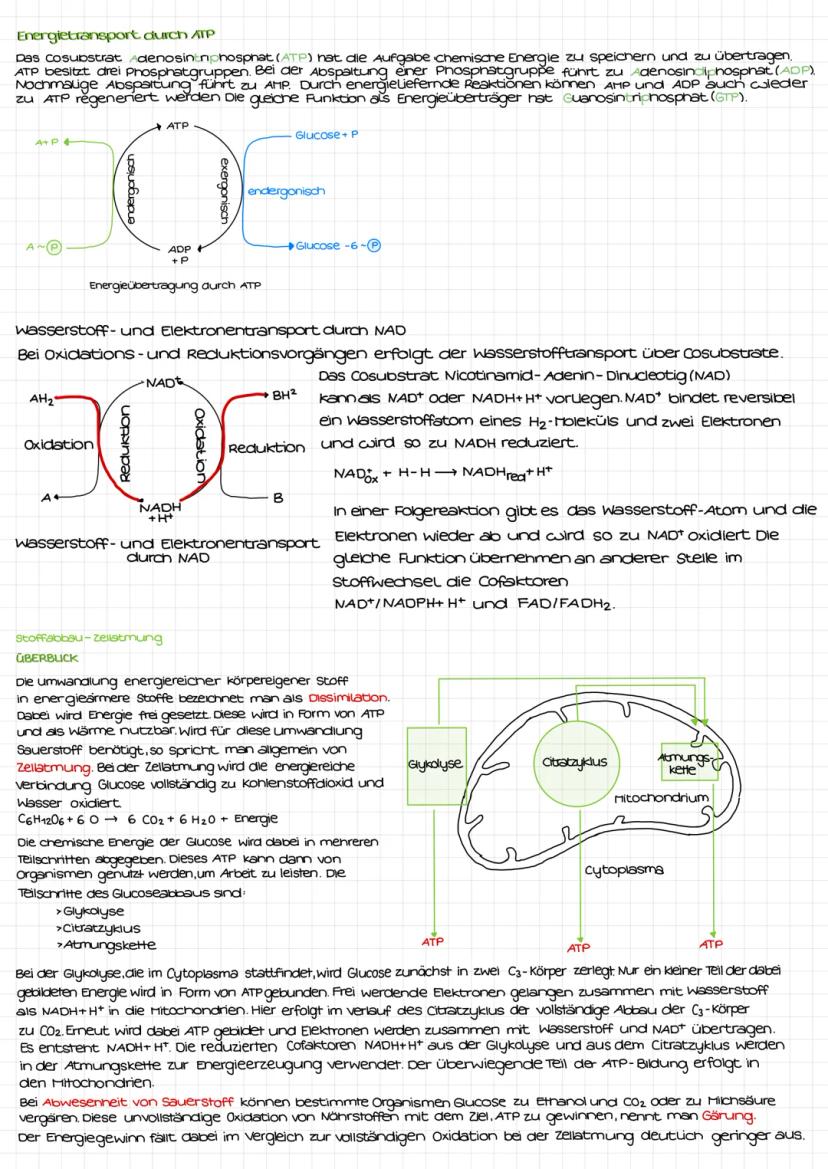 Energietransport durch ATP
Das Cosubstrat Adenosintriphosphat (ATP) hat die Aufgabe chemische Energie zu speichern und zu übertragen.
ATP besitzt drei Phosphatgruppen. Bei der Abspaltung einer Phosphatgruppe führt zu Adenosindiphosphat (ADP)
Nochmalige Abspaltung führt zu AMP. Durch energieliefernde Reaktionen können AMP und ADP auch wieder
zu ATP regeneriert werden Die gleiche Funktion als Energieüberträger hat Guanosintriphosphat (GTP).
ATP
A+P
Glucose + P
endergonisch
exergonisch
endergonisch
A~P
ADP
+ P
Glucose -6 ~P
Energieübertragung durch ATP
Wasserstoff- und Elektronentransport durch NAD
Bei Oxidations- und Reduktionsvorgängen erfolgt der Wasserstofftransport über Cosubstrate.
Das Cosubstrat Nicotinamid-Adenin-Dinucleotig (NAD)
kann als NAD⁺ oder NADH+H⁺ vorliegen. NAD⁺ bindet reversibel
ein Wasserstoffatom eines H₂-Moleküls und zwei Elektronen
und wird so zu NADH reduziert.
NAD⁺ox + H-H → NADHred + H⁺
In einer Folgereaktion gibt es das Wasserstoff-Atom und die
Elektronen wieder ab und wird so zu NAD⁺ oxidiert Die
gleiche Funktion übernehmen an anderer Stelle im
Stoffwechsel die Cofaktoren
NAD⁺/NADPH+H⁺ und FAD/FADH₂.
NAD⁺
AH₂
BH²
Oxidation
Reduktion
Oxidation
Reduktion
A
NADH
+H⁺
B
Wasserstoff- und Elektronentransport
durch NAD
Stoffabbau-Zellatmung
ÜBERBLICK
Die umwandlung energiereicher körpereigener Stoff
in energieärmere Stoffe bezeichnet man als Dissimilation.
Dabei wird Energie frei gesetzt. Diese wird in Form von ATP
und als Wärme nutzbar. Wird für diese Umwandlung
Sauerstoff benötigt, so spricht man allgemein von
Zellatmung. Bei der Zellatmung wird die energiereiche
Verbindung Glucose vollständig zu Kohlenstoffdioxid und
Wasser oxidiert.
C₆H₁₂O₆ + 6 O → 6 CO₂ + 6 H₂O + Energie
Die chemische Energie der Glucose wird dabei in mehreren
Teilschritten abgegeben. Dieses ATP kann dann von
Organismen genutzt werden, um Arbeit zu leisten. Die
Teilschritte des Glucoseabbaus sind:
> Glykolyse
> Citratzyklus
> Atmungskette
Glykolyse
Citratzyklus
Atmungs-
kette
Mitochondrium
Cytoplasma
ATP
ATP
ATP
Bei der Glykolyse, die im Cytoplasma stattfindet, wird Glucose zunächst in zwei C₃-Körper zerlegt. Nur ein kleiner Teil der dabei
gebildeten Energie wird in Form von ATP gebunden. Frei werdende Elektronen gelangen zusammen mit Wasserstoff
als NADH+H⁺ in die Mitochondrien. Hier erfolgt im verlauf des Citratzyklus der vollständige Abbau der C₃-Körper
zu CO₂. Erneut wird dabei ATP gebildet und Elektronen werden zusammen mit Wasserstoff und NAD⁺ übertragen.
Es entsteht NADH+H⁺. Die reduzierten Cofaktoren NADH+H⁺ aus der Glykolyse und aus dem Citratzyklus werden
in der Atmungskette zur Energieerzeugung verwendet. Der überwiegende Teil der ATP-Bildung erfolgt in
den Mitochondrien.
Bei Abwesenheit von Sauerstoff können bestimmte Organismen Glucose zu Ethanol und CO₂ oder zu Milchsäure
vergären. Diese unvollständige Oxidation von Nährstoffen mit dem Ziel, ATP zu gewinnen, nennt man Gärung.
Der Energiegewinn fällt dabei im Vergleich zur vollständigen Oxidation bei der Zellatmung deutlich geringer aus.